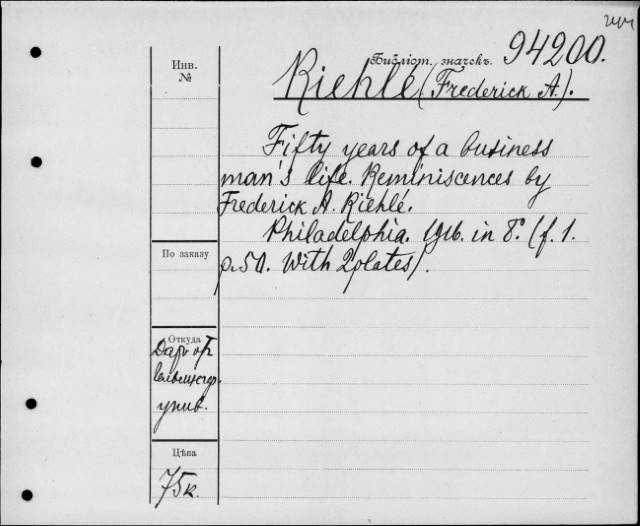 Инв.
№
Библіот. значекъ. 94200.
Riehlé (Frederick A.).
Fifty years of a business
man's life. Reminiscences by
Frederick A. Riehlé.
Philadelphia. 1916. in 8° (f. 1.
p. 50. With 2 plates).
По заказу
Откуда
Даръ от
унив.
Цѣна
75к.